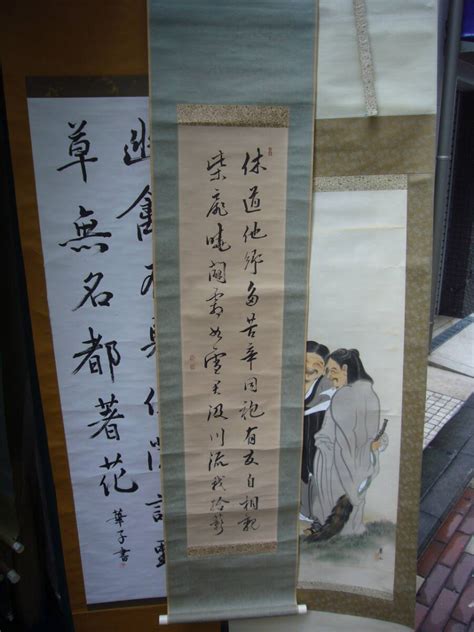 休道他郷多苦辛同袍有友自相親
柴扉曉開霜如雪君汲川流我拾薪
幽禽
草無名都著花
華子書